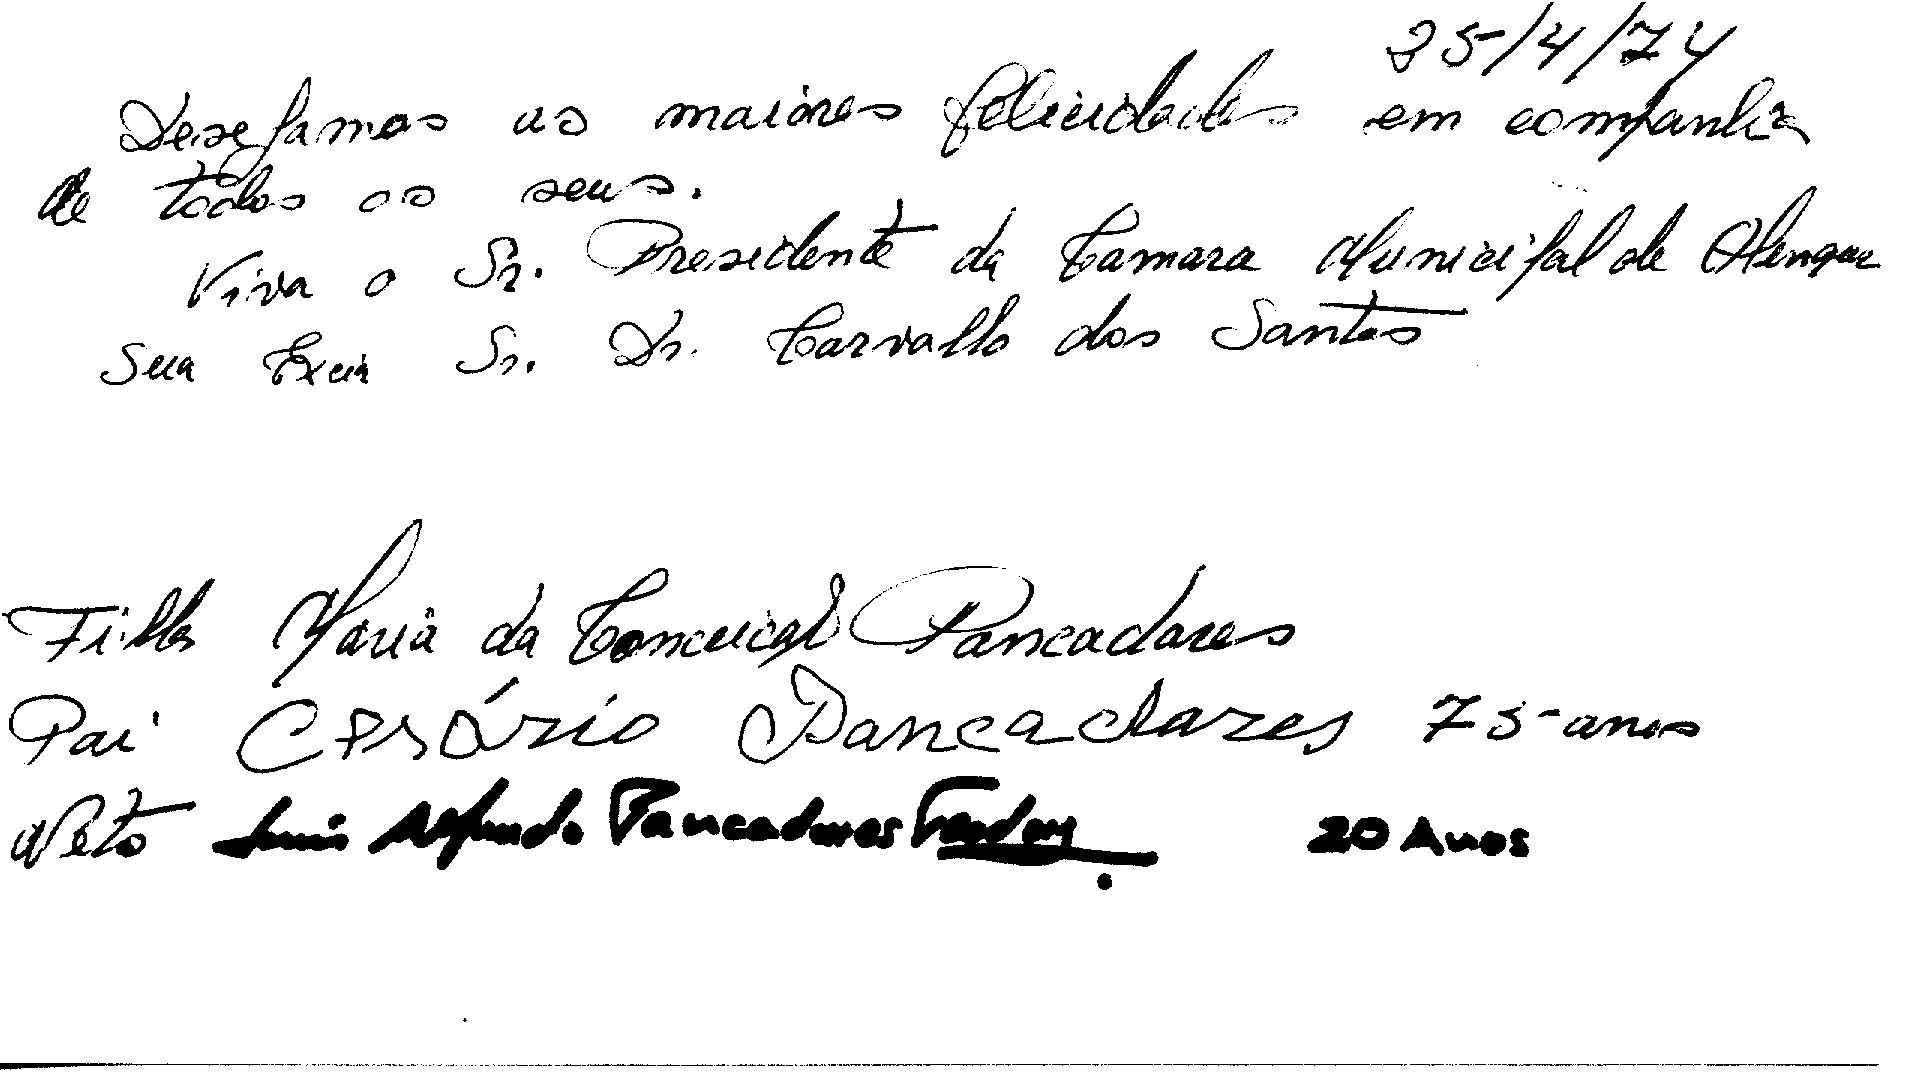 25/4/74
Desejamos as maiores felicidades em companhia
de todos os seus.
Viva o Sr. Presidente da Camara Municipal de Alenquer
Sua Excia Sr. Dr. Carvalho dos Santos
Filha Maria da Conceição Pancadares
Pai Cesário Pancadares 75 anos
Neto Luis Alfredo Pancadares 20 Anos